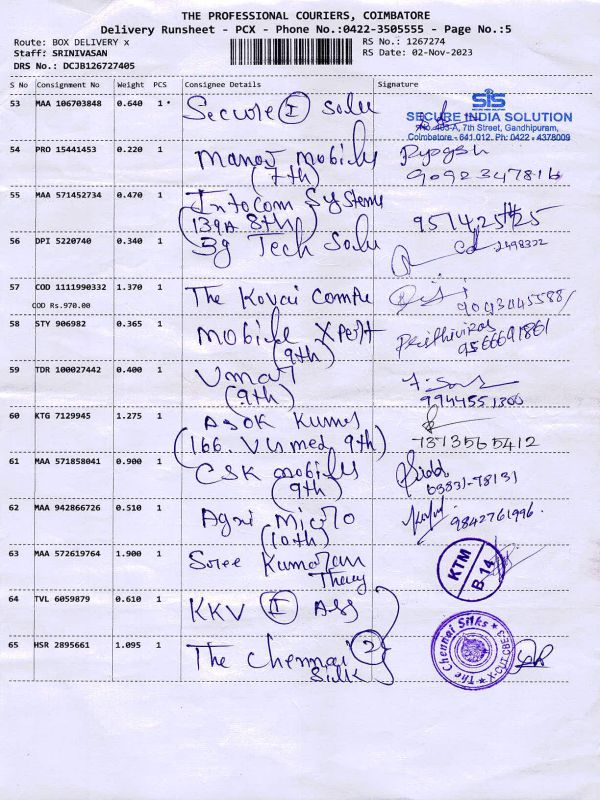 THE PROFESSIONAL COURIERS, COIMBATORE
Delivery Runsheet - PCX - Phone No.:0422-3505555 - Page No.:5
Route: BOX DELIVERY x
RS No.: 1267274
Staff: SRINIVASAN
RS Date: 02-Nov-2023
DRS No.: DCJB126727405
S No Consignment No Weight PCS Consignee Details Signature
53 MAA 106703848 0.640 1 * Secure I Solu
SIS
SECURE INDIA SOLUTION
7th Street, Gandhipuram,
Coimbatore - 641 012. Ph: 0422 - 4378009
54 PRO 15441453 0.220 1 Manoj mobiles
(7th) 9092347816
55 MAA 571452734 0.470 1 Infocom Systems
(139A 8th)
56 DPI 5220740 0.340 1 3g Tech Solu
57 COD 1111990332 1.370 1 The Kovai Compu
COD Rs.970.00
58 STY 906982 0.365 1 mobile Xpert Prithiviraj
(9th) 9566691861
59 TDR 100027442 0.400 1 Umar
(9th) 9944551300
60 KTG 7129945 1.275 1 Asok Kumar
(166. 9th) 7373565412
61 MAA 571858041 0.900 1 CSK mobiles
(9th)
62 MAA 942866726 0.510 1 Agni Micro
(10th) 9842761996.
63 MAA 572619764 1.900 1 Sree Kumaran
KTM
B 14
64 TVL 6059879 0.610 1 KKV II Ass
65 HSR 2895661 1.095 1 The Chennai 2
Silk
The Chennai Silks